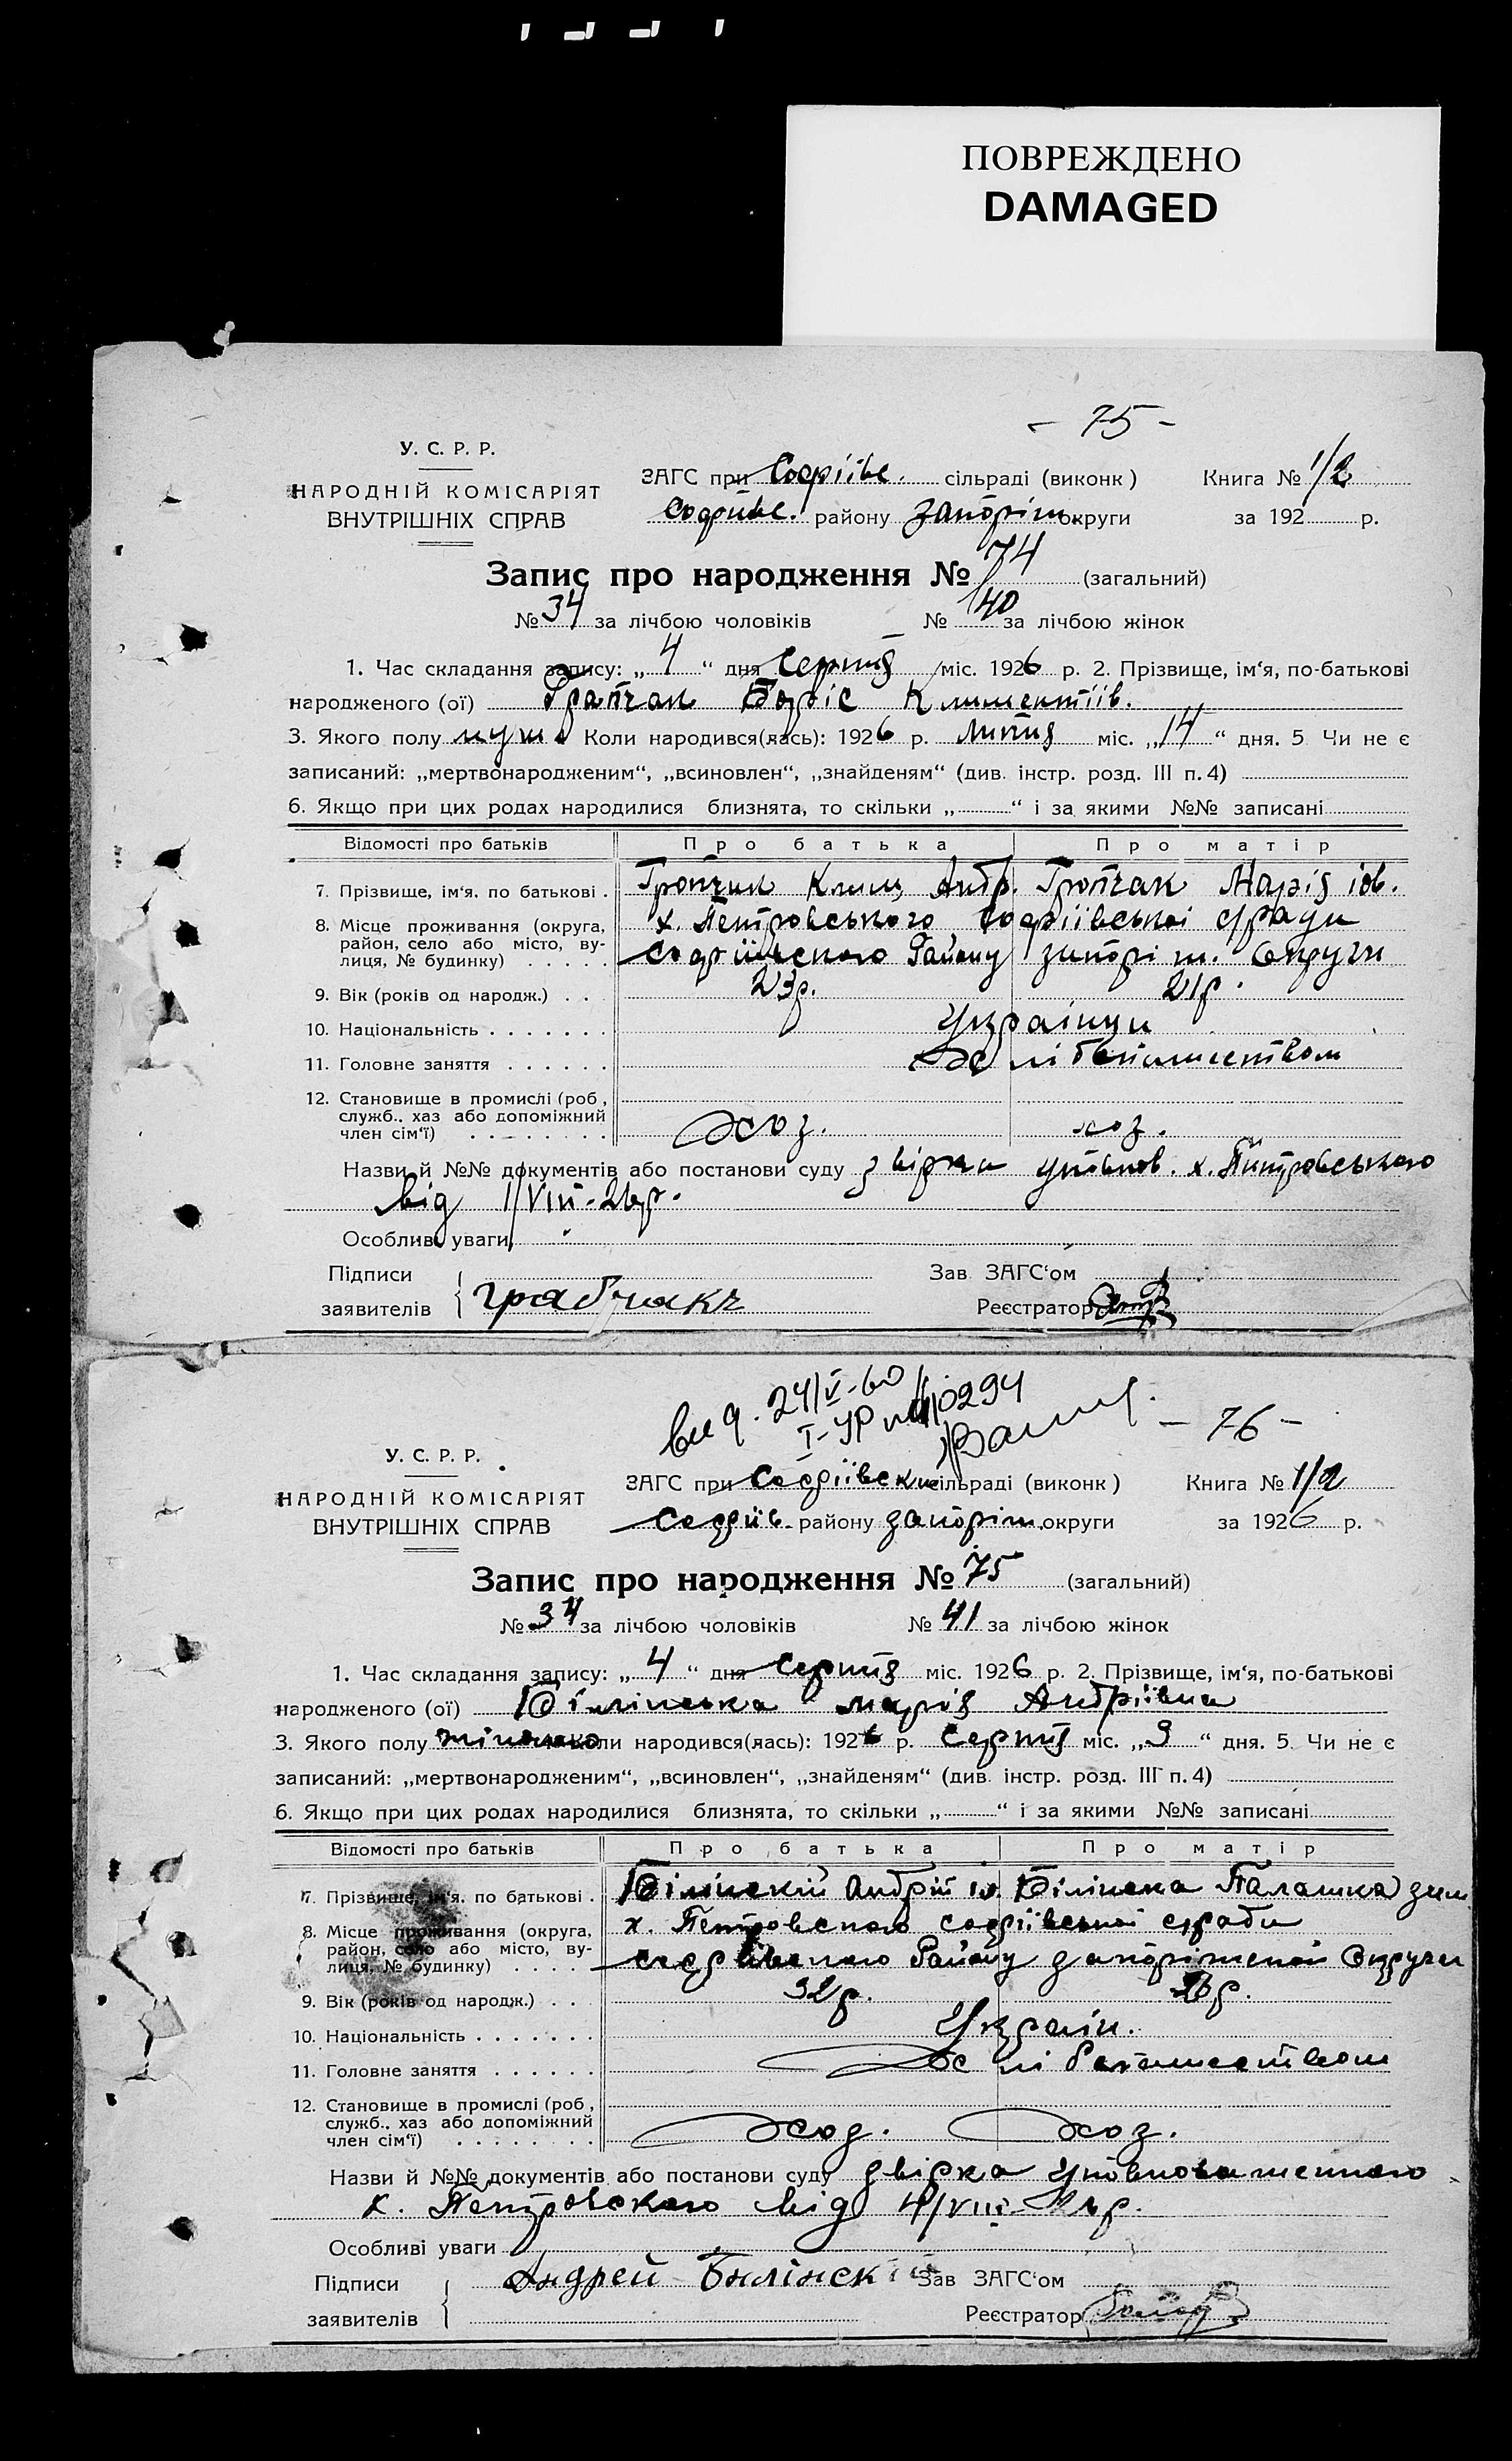 ПОВРЕЖДЕНО
DAMAGED
- 75 -
У. С. Р. Р.
НАРОДНІЙ КОМІСАРІЯТ
ВНУТРІШНІХ СПРАВ
ЗАГС при Софіївс. сільраді (виконк) Книга № 1/2
Софиівс. району Запоріж. округи за 192 р.
Запис про народження № 74 (загальний)
№ 34 за лічбою чоловіків № 40 за лічбою жінок
1. Час складання запису: „ 4 “ дня Серпня міс. 1926 р. 2. Прізвище, ім‘я, по-батькові
народженого (ої) Боріс Климентіїв.
3. Якого полу муж. Коли народився(лась): 1926 р. Липня міс. „ 14 “ дня. 5 Чи не є
записаний: „мертвонародженим“, „всиновлен“, „знайденям“ (див. інстр. розд. III п. 4)
6. Якщо при цих родах народилися близнята, то скільки „ “ і за якими №№ записані
Відомості про батьків Про батька Про матір
7. Прізвище, ім‘я. по батькові . Клим Андр. Марія
8. Місце проживання (округа, х. Петровського Софіївської с/ради
район, село або місто, ву-
лиця, № будинку) . . . . . Софіївського Району Запоріж. Округи
9. Вік (років од народж.) . . 23р. 21р.
10. Національність . . . . . . . Українци
11. Головне заняття . . . . . . Хліборобством
12. Становище в промислі (роб.,
служб., хаз або допоміжний
член сім‘ї) . . . . . . . . хоз. хоз.
Назви й №№ документів або постанови суду звірки уповнов. х. Петровського
від 1/VIII-26р.
Особливі уваги
Підписи Зав ЗАГС‘ом
заявителів грабчакъ Реєстратор
вид. 24/V-60
I-УР № 410294
- 76 -
У. С. Р. Р.
НАРОДНІЙ КОМІСАРІЯТ
ВНУТРІШНІХ СПРАВ
ЗАГС при Софіївск сільраді (виконк) Книга № 1/2
Софіїв. району Запоріж. округи за 1926 р.
Запис про народження № 75 (загальний)
№ 34 за лічбою чоловіків № 41 за лічбою жінок
1. Час складання запису: „ 4 “ дня Серпня міс. 1926 р. 2. Прізвище, ім‘я, по-батькові
народженого (ої) Білінська Марія Андріївна
3. Якого полу жіночого Коли народився(лась): 1926 р. Серпня міс. „ 3 “ дня. 5. Чи не є
записаний: „мертвонародженим“, „всиновлен“, „знайденям“ (див. інстр. розд. III п. 4)
6. Якщо при цих родах народилися близнята, то скільки „ “ і за якими №№ записані
Відомості про батьків Про батька Про матір
7. Прізвище, ім‘я. по батькові . Білінский Андрій Білінска Палашка
8. Місце проживання (округа, х. Петровского Софіївської с/ради
район, село або місто, ву-
лиця, № будинку) . . . . Софіївского Району Запоріжской Округи
9. Вік (років од народж.) . . . 32р. 26р.
10. Національність . . . . . . . Україн.
11. Головне заняття . . . . . . Хліборобством
12. Становище в промислі (роб.,
служб., хаз або допоміжний
член сім‘ї) . . . . . . . . хоз. хоз.
Назви й №№ документів або постанови суду звірка Уповноваженного
х. Петровского від 4/VIII-26р.
Особливі уваги
Підписи Андрей Билінский Зав ЗАГС‘ом
заявителів Реєстратор